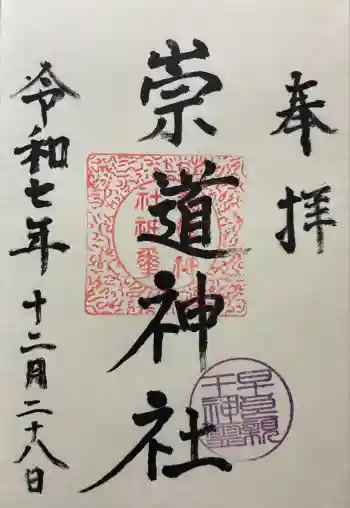 奉拝
崇道神社
早良親王神霊
令和七年十二月二十八日